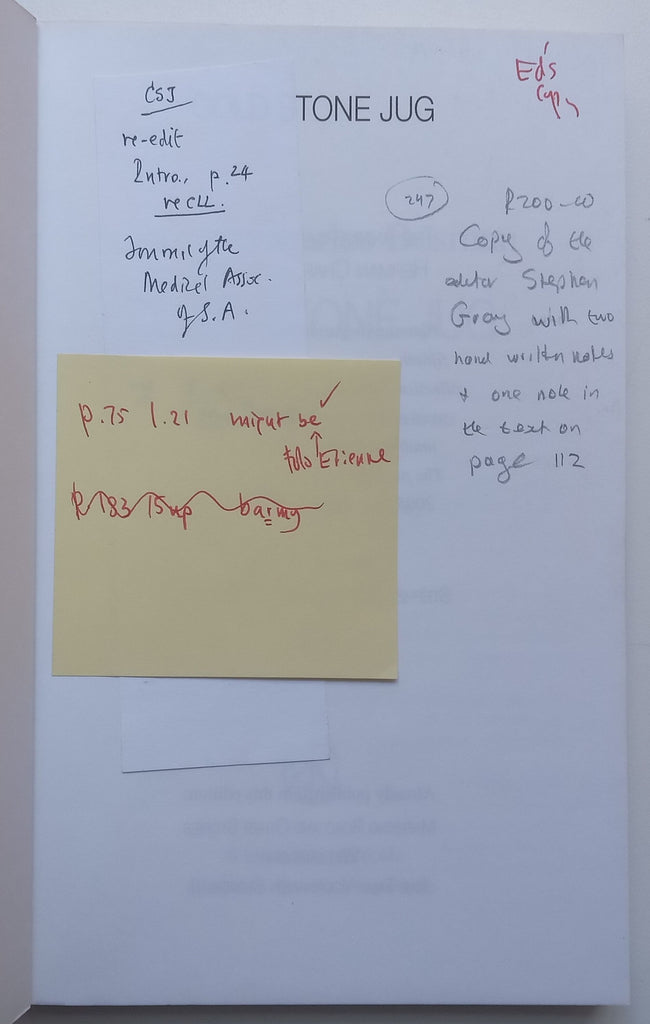 CSJ
re-edit
Intro., p.24
re CLL.
Journal of the
Medical Assoc.
of S.A.
TONE JUG
Ed's
Copy
247
R200-00
Copy of the
editor Stephen
Gray with two
hand written notes
+ one note in
the text on
page 112
p.75 l.21 might be ✓
Etienne
15up barmy